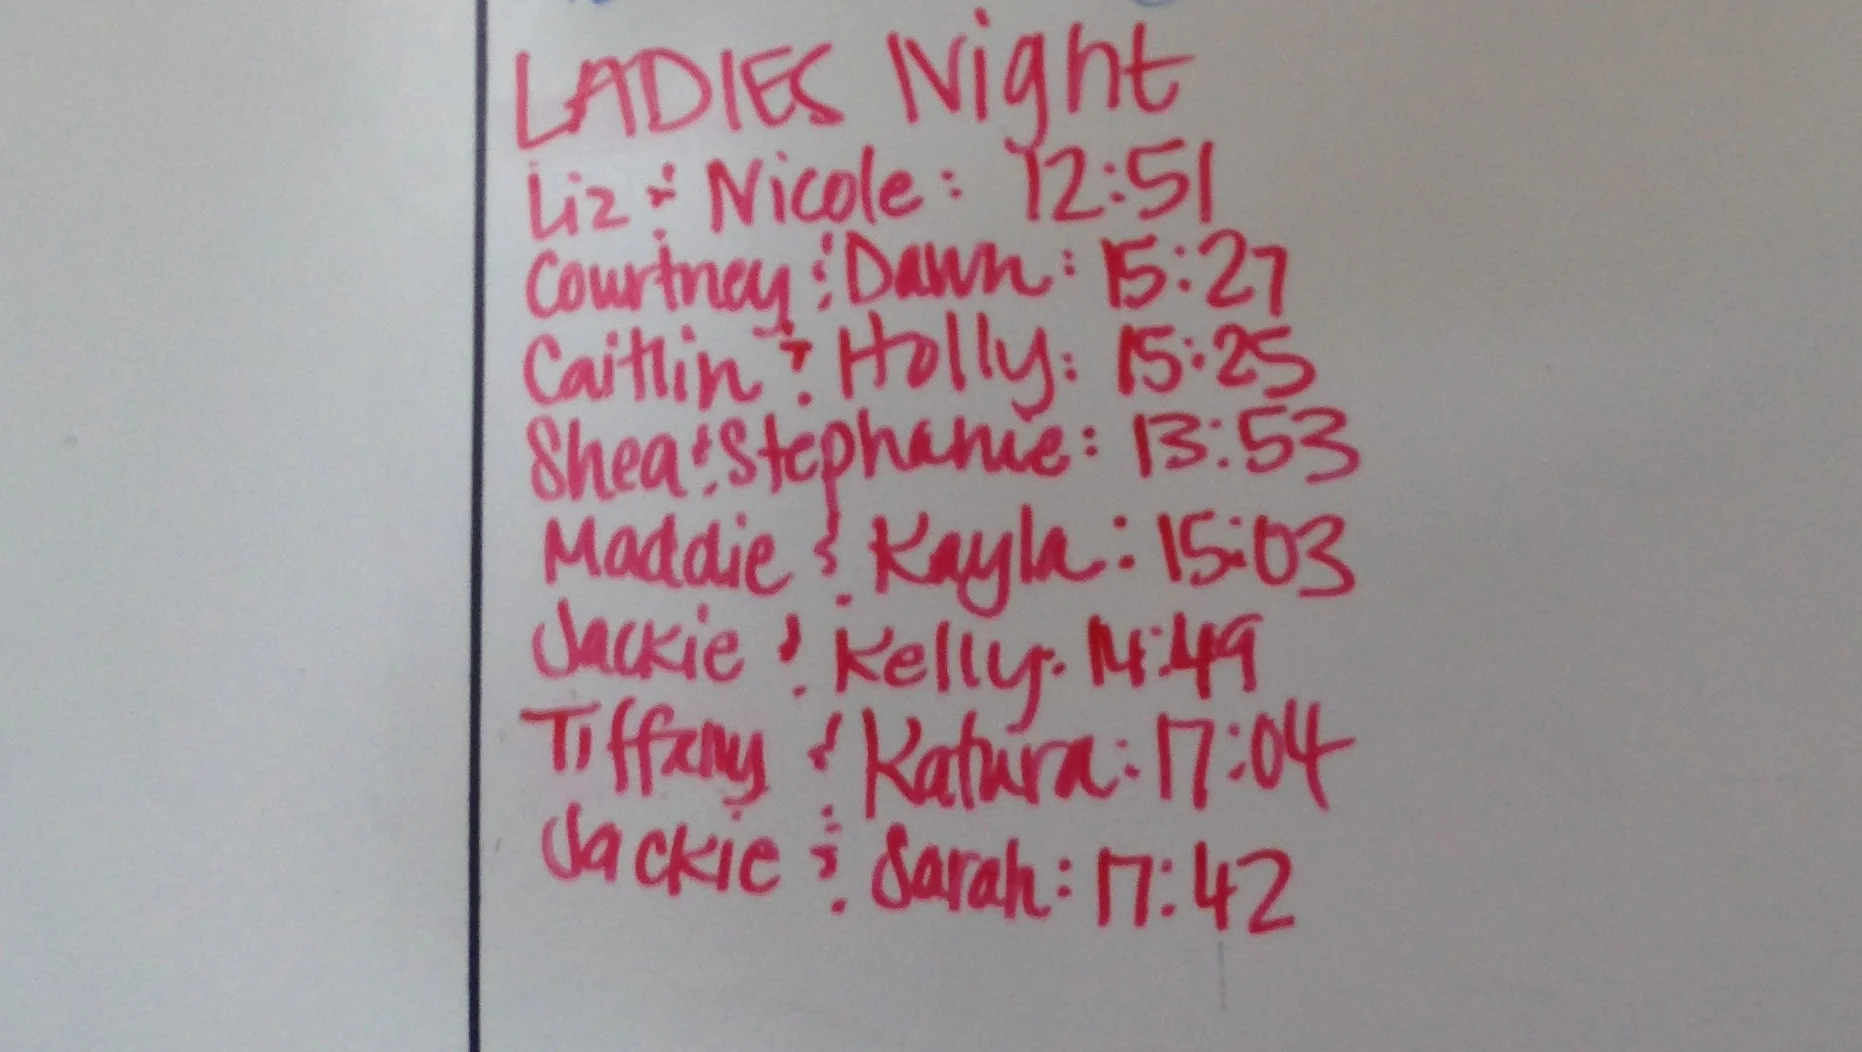 LADIES Night
Liz & Nicole: 12:51
Courtney & Dawn: 15:27
Caitlin & Holly: 15:25
Shea & Stephanie: 13:53
Maddie & Kayla: 15:03
Jackie & Kelly: 14:49
Tiffany & Katura: 17:04
Jackie & Sarah: 17:42